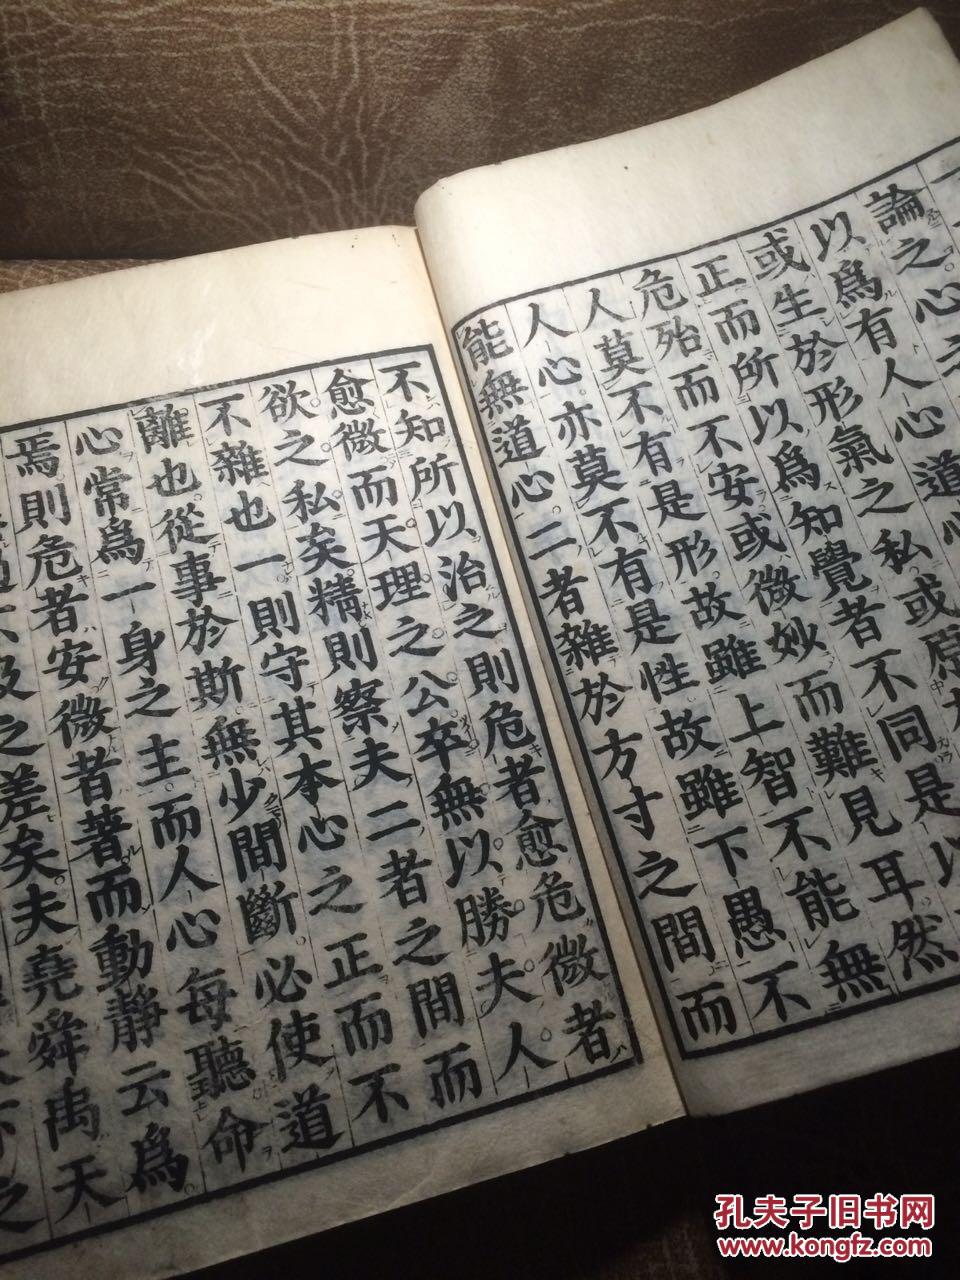 論之心之
以爲有人心道心
或生於形氣之私或原
正而所以爲知覺者不同是以
危殆而不安或微妙而難見耳然
人莫不有是形故雖上智不能無
人心亦莫不有是性故雖下愚不
能無道心二者雜於方寸之間而
不知所以治之則危者愈危微者
愈微而天理之公卒無以勝夫人
欲之私矣精則察夫二者之間而
不雜也一則守其本心之正而不
離也從事於斯無少間斷必使道
心常爲一身之主而人心每聽命
焉則危者安微者著而動靜云爲
過不及之差矣夫堯舜禹天
孔夫子旧书网
www.kongfz.com